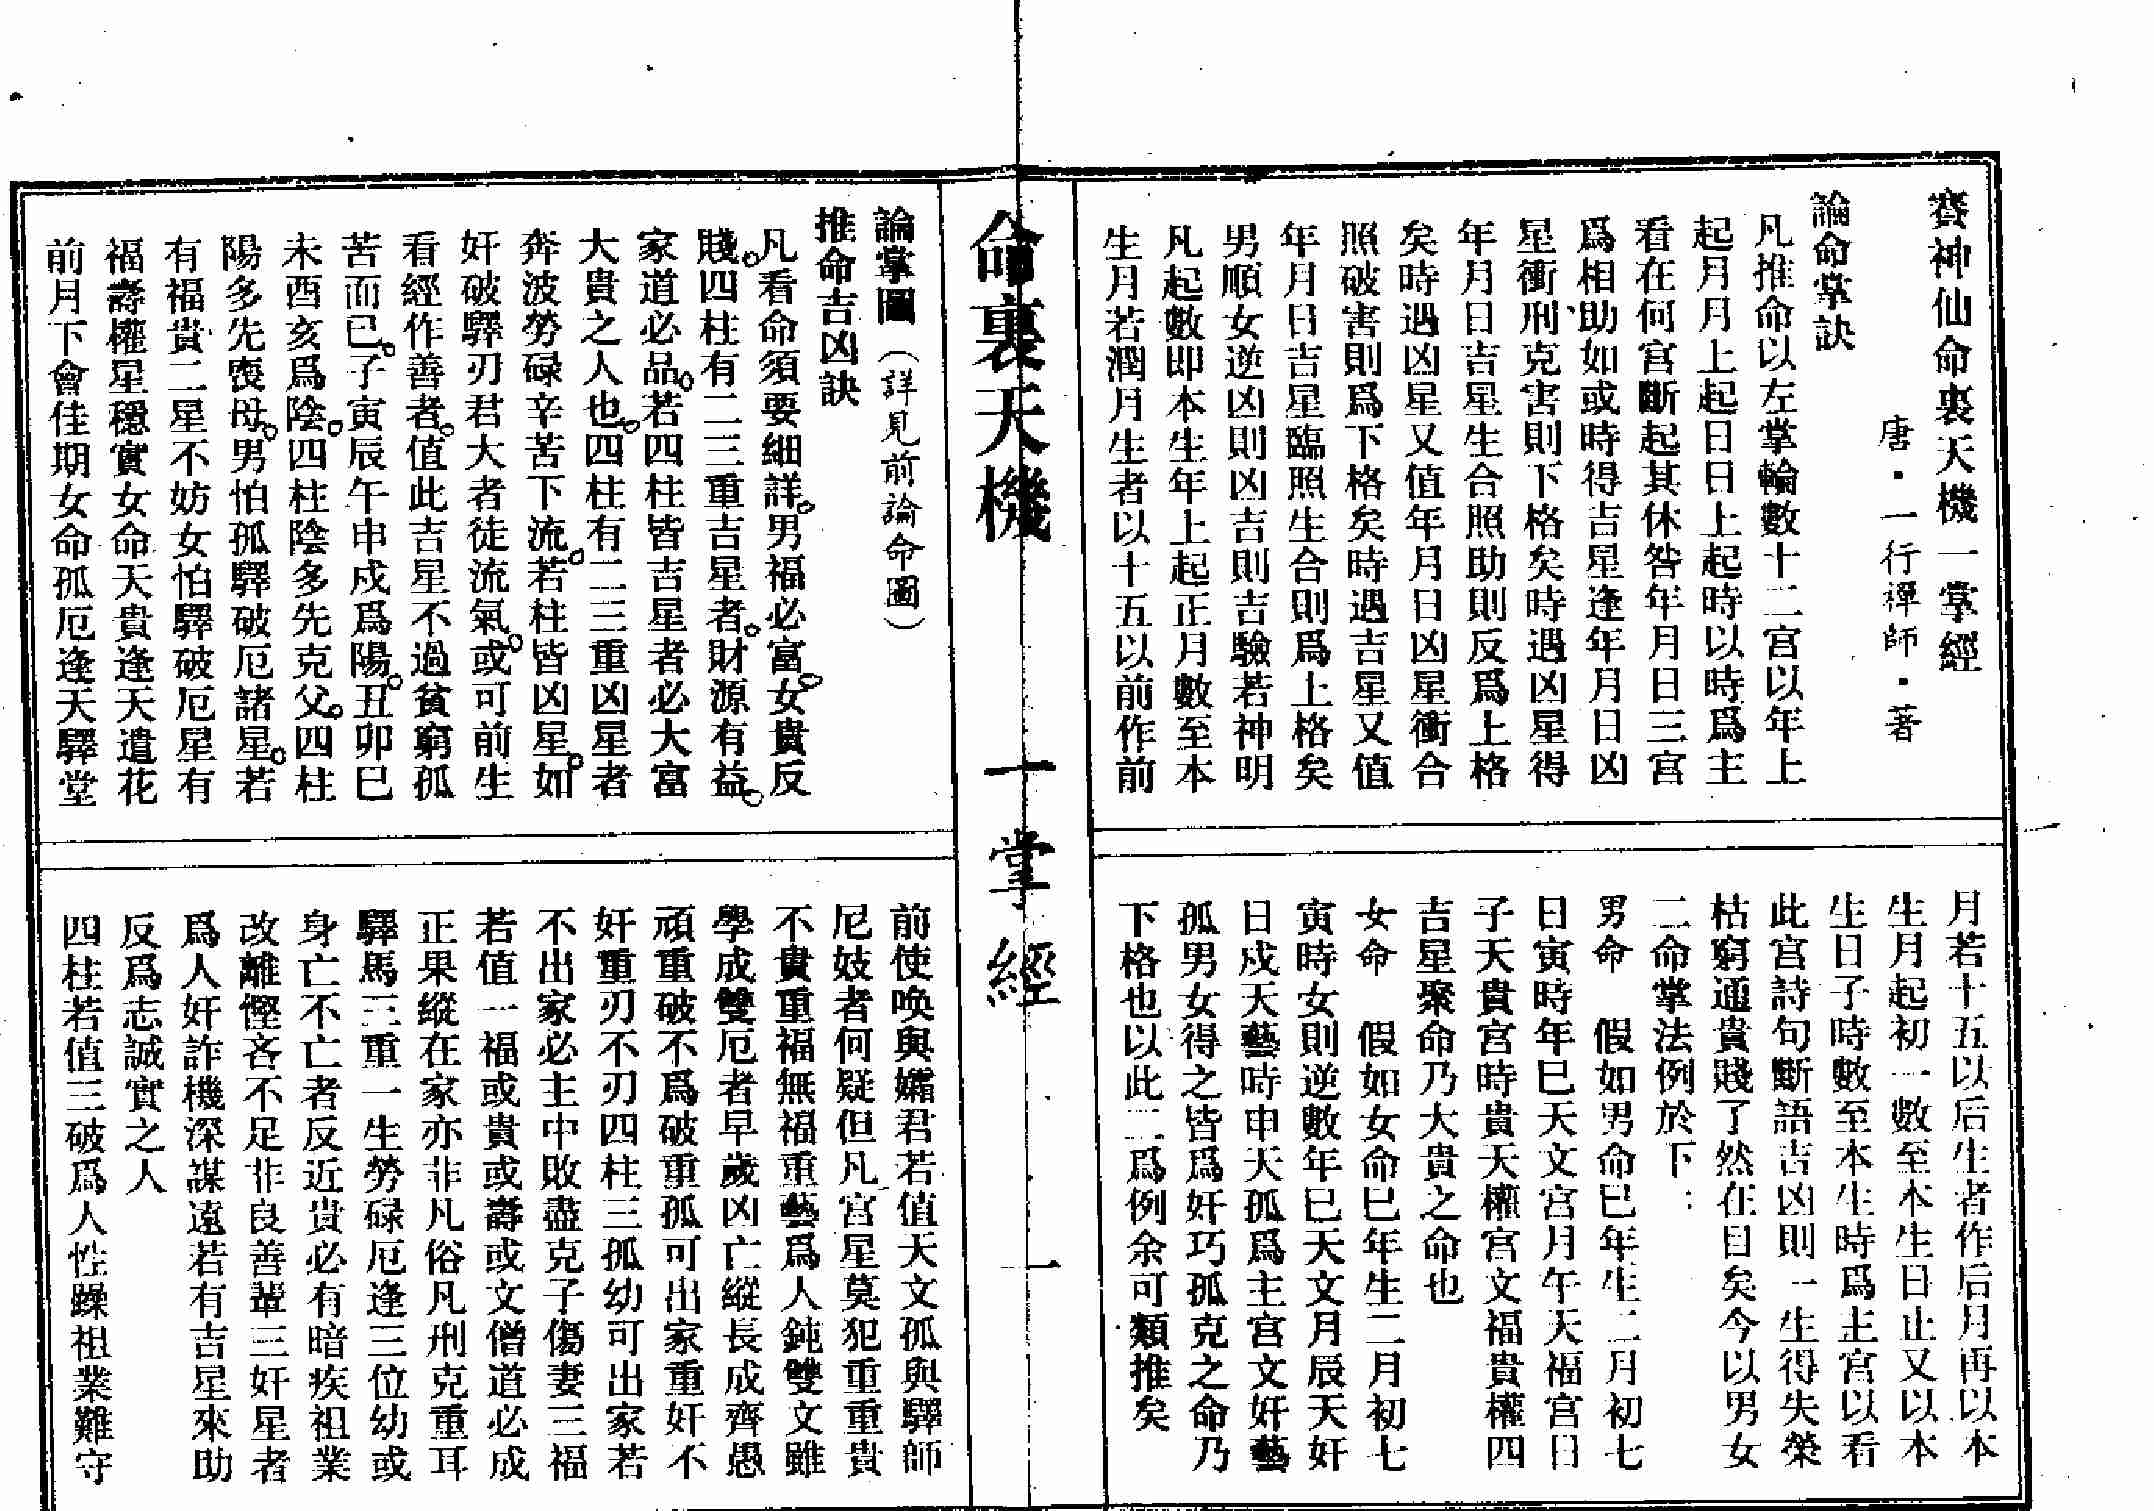 賽神仙命裏天機一掌經
唐·一行禪師·著
論命掌訣
凡推命以左掌輪數十二宮以年上
起月月上起日日上起時以時爲主
看在何宮斷起其休咎年月日三宮
爲相助如或時得吉星逢年月日凶
星衝刑克害則下格矣時遇凶星得
年月日吉星生合照助則反爲上格
矣時遇凶星又值年月日凶星衝合
照破害則爲下格矣時遇吉星又值
年月日吉星臨照生合則爲上格矣
男順女逆凶則凶吉則吉驗若神明
凡起數即本生年上起正月數至本
生月若潤月生者以十五以前作前
月若十五以后生者作后月再以本
生月起初一數至本生日止又以本
生日子時數至本生時爲主宮以看
此宮詩句斷語吉凶則一生得失榮
枯窮通貴賤了然在目矣今以男女
二命掌法例於下：
男命　假如男命巳年生二月初七
日寅時年巳天文宮月午天福宮日
子天貴宮時貴天權宮文福貴權四
吉星聚命乃大貴之命也
女命　假如女命巳年生二月初七
寅時女則逆數年巳天文月辰天奸
日戌天藝時申天孤爲主宮文奸藝
孤男女得之皆爲奸巧孤克之命乃
下格也以此二爲例余可類推矣
命裏天機　一掌經　一
論掌圖（詳見前論命圖）
推命吉凶訣
凡看命須要細詳。男福必富。女貴反
賤。四柱有二三重吉星者。財源有益。
家道必品。若四柱皆吉星者必大富
大貴之人也。四柱有二三重凶星者
奔波勞碌辛苦下流。若柱皆凶星。如
奸破驛刃君大者徒流氣。或可前生
看經作善者。值此吉星不過貧窮孤
苦而已。子寅辰午申戌爲陽。丑卯巳
未酉亥爲陰。四柱陰多先克父。四柱
陽多先喪母。男怕孤驛破厄諸星。若
有福貴二星不妨女怕驛破厄星有
福壽權星穩實女命天貴逢天遣花
前月下會佳期女命孤厄逢天驛堂
前使喚與孀君若值天文孤與驛師
尼妓者何疑但凡宮星莫犯重重貴
不貴重福無福重藝爲人鈍雙文雖
學成雙厄者早歲凶亡縱長成齊愚
頑重破不爲破重孤可出家重奸不
奸重刃不刃四柱三孤幼可出家若
不出家必主中敗盡克子傷妻三福
若值一福或貴或壽或文僧道必成
正果縱在家亦非凡俗凡刑克重耳
驛馬三重一生勞碌厄逢三位幼或
身亡不亡者反近貴必有暗疾祖業
改離慳吝不足非良善輩三奸星者
爲人奸詐機深謀遠若有吉星來助
反爲志誠實之人
四柱若值三破爲人性躁祖業難守